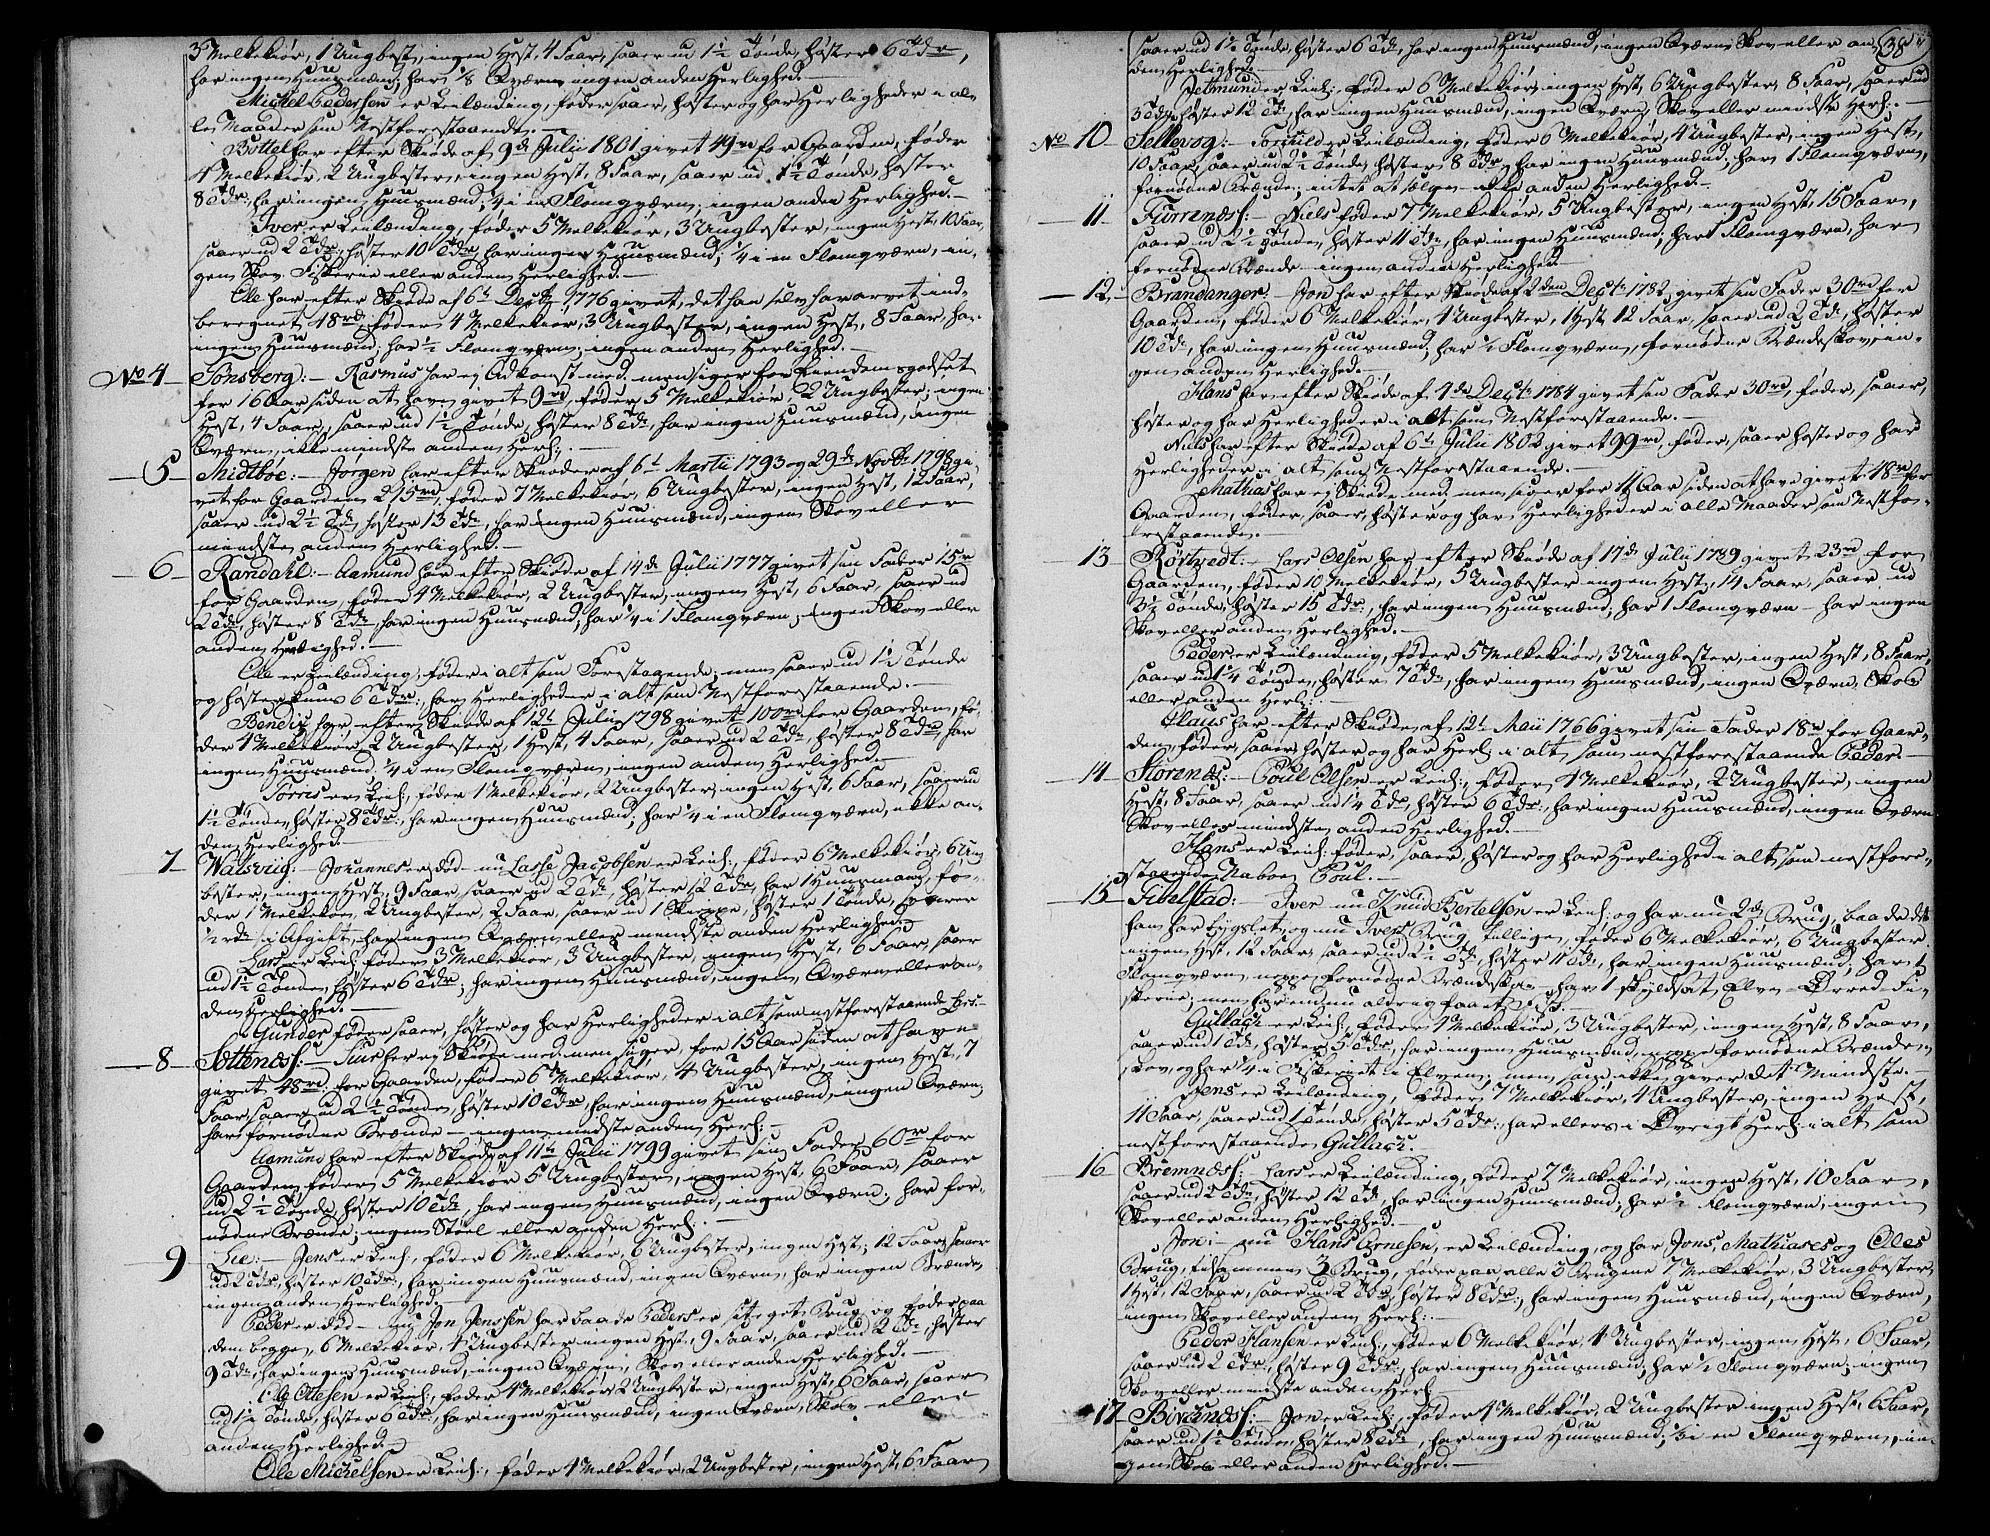 3 Melkekiør, 1 Ungbest, ingen Hest, 4 Faar, saaer ud 1½ Tønde, høster 6 Tdr,
har ingen Huusmænd, har ⅛ Qværn ingen anden Herlighed.
Mickel Pedersen er Leilænding, føder, saaer, høster og har Herligheder i al-
le Maader som Nestforestaaende.
Bottel har efter Skiøde af 9de Julii 1801 givet 49rd for Gaarden, føder
4 Melkekiør, 2 Ungbester, ingen Hest, 8 Faar, saaer ud 1½ Tønde, høster
8 Tdr, har ingen Huusmænd, ¼ i en Flomqværn, ingen anden Herlighed.
Iver er Leilænding, føder 5 Melkekiør, 3 Ungbester, ingen Hest, 10 Faar,
saaer ud 2 Tdr, høster 10 Tdr, har ingen Huusmænd, ¼ i en Flomqværn, in-
gen Skov, Fiskerie eller anden Herlighed.
Ole har efter Skiøde af 6t Decbr 1776 givet, det han selv har arvet ind-
beregnet 48rd, føder 4 Melkekiør, 3 Ungbester, ingen Hest, 8 Faar, har
ingen Huusmænd, har ½ Flomqværn, ingen anden Herlighed.
No 4 Sønsberg: Rasmus har ej Adkomst med, men siger for Eiendomsgodset
for 16 Aar siden at have givet 9rd, føder 5 Melkekiør, 2 Ungbester, ingen
Hest, 4 Faar, saaer ud 1½ Tønde, høster 8 Tdr, har ingen Huusmænd, ingen
Qværn, ikke mindste anden Herl:
5 Midtbøe: Jørgen har efter Skiøder af 6t Martii 1793 og 29de Novbr 1798 gi-
vet for Gaarden 215rd, føder 7 Melkekiør, 6 Ungbester, ingen Hest, 12 Faar,
saaer ud 2½ Tdr, høster 13 Tdr, har ingen Huusmænd, ingen Skov eller
mindste anden Herlighed.
6 Randahl: Aamund har efter Skiøde af 14de Julii 1777 givet sin Fader 15rd
for Gaarden, føder 4 Melkekiør, 2 Ungbester, ingen Hest, 6 Faar, saaer ud
2 Tdr, høster 8 Tdr, har ingen Huusmænd, har ¼ i 1 Flomqværn, ingen Skov eller
anden Herlighed.
Ole er Leilænding, føder i alt som Forestaaende, men saaer ud 1½ Tønde
og høster kuns 6 Tdr, har Herligheder i alt som Nestforestaaende.
Bendix har efter Skiøde af 12t Julii 1798 givet 100rd for Gaarden, fø-
der 4 Melkekiør, 2 Ungbester, 1 Hest, 4 Faar, saaer ud 2 Tdr, høster 8 Tdr, har
ingen Huusmænd, ¼ i en Flomqværn, ingen anden Herlighed.
Torris er Leil:, føder 4 Melkekiør, 2 Ungbester, ingen Hest, 6 Faar, saaer ud
1½ Tønde, høster 8 Tdr, har ingen Huusmænd, har ¼ i en Flomqværn, ikke an-
den Herlighed.
7 Walsvig: Johannes er død – nu Lasse Jacobsen er Leil:, føder 6 Melkekiør, 6 Ung
bester, ingen Hest, 9 Faar, saaer ud 2 Tdr, høster 12 Tdr, har 1 Huusmand, fø-
der 1 Melkekoe, 2 Ungbester, 2 Faar, saaer ud 1 Skieppe, høster 1 Tønde, svarer
½ rdr i Afgift, har ingen Qværn eller mindste anden Herlighed.
Lars er Leil: føder 3 Melkekiør, 3 Ungbester, ingen Hest, 6 Faar, saaer
ud 1½ Tønde, høster 6 Tdr, har ingen Huusmænd, ingen Qværn eller an-
den Herlighed.
Gunder føder saaer, høster og har Herligheder i alt som nestforestaaende Lars.
8 Sættenæs: Tuur har ej Skiøde med men siger, for 15 Aar siden at have
givet 48rd for Gaarden, føder 6 Melkekiør, 4 Ungbester, ingen Hest, 7
Faar, saaer ud 2½ Tønde, høster 10 Tdr, har ingen Huusmænd, ingen Qværn,
har fornødne Brænde – ingen mindste anden Herl:
Aamund har efter Skiøde af 11te Julii 1799 givet sin Fader 60rd for
Gaarden, føder 5 Melkekiør 5 Ungbester, ingen Hest, 6 Faar, saaer
ud 2½ Tønde, høster 10 Tdr, har ingen Huusmænd, ingen Qværn, har for-
nødne Brænde, ingen Skov eller anden Herl:
9 Lie: Jens er Leil:, føder 6 Melkekiør, 6 Ungbester, ingen Hest, 12 Faar, saaer
ud 2 Tdr, høster 10 Tdr, har ingen Huusmænd, ingen Qværn, har ingen Brænde,
ingen anden Herlighed.
Peder er død – nu Jon Jenssen har baade Peders og sit eget Brug og føder paa
dem begge, 6 Melkekiør, 4 Ungbester ingen Hest, 9 Faar, saaer ud 2 Tdr, høster
9 Tdr, har ingen Huusmænd, ingen Qværn, Skov eller anden Herlighed.
Ole Olesen er Leil:, føder 4 Melkekiør, 2 Ungbester, ingen Hest, 6 Faar, saaer
ud 1½ Tønde, høster 6 Tdr, har ingen Huusmænd, ingen Qværn, Skov eller
anden Herlighed.
Ole Mickelsen er Leil:, føder 4 Melkekiør, 2 Ungbester, ingen Hest, 6 Faar
38
saaer ud 1½ Tønde, høster 6 Tdr, har ingen Huusmænd, ingen Qværn Skov eller an-
den Herlighed.
Detmund er Leil:, føder 6 Melkekiør, ingen Hest, 6 Ungbester, 8 Faar, saaer ud
3 Tdr, høster 12 Tdr, har ingen Huusmænd, ingen Qværn, Skov eller mindste Herl:
No 10 Sellevog: Torkild er Leilænding, føder 6 Melkekiør, 4 Ungbester, ingen Hest,
10 Faar, saaer ud 2½ Tønde, høster 8 Tdr, har ingen Huusmænd, har 1 Flomqværn,
fornødne Brænde, intet at sælge – ikke anden Herlighed.
11 Furrenæs: Niels føder 7 Melkekiør, 5 Ungbester, ingen Hest, 15 Faar,
saaer ud 2½ Tønde, høster 11 Tdr, har ingen Huusmænd, har 1 Flomqværn, har
fornødne Brænde – ingen anden Herlighed.
12 Brandanger: Jon har efter Skiøde af 2den Decbr 1782 givet sin Fader 30rd for
Gaarden, føder 6 Melkekiør, 4 Ungbester, 1 Hest, 12 Faar, saaer ud 2 Tdr, høster
10 Tdr, har ingen Huusmænd, har ½ Flomqværn, fornødne Brændeskov, in-
gen anden Herlighed.
Hans har efter Skiøde af 4de Decbr 1784 givet sin Fader 30rd, føder, saaer,
høster og har Herligheder i alt som Nestforestaaende.
Niels har efter Skiøde af 6t Julii 1802 givet 99rd, føder, saaer høster og har
Herligheder i alt som Nestforestaaende.
Mathias har ej Skiøde med, men siger for 11 Aar siden at have givet 48rd for
Gaarden, føder, saaer, høster og har Herligheder i alle Maader som Nestfo-
restaaende.
13 Røitvedt: Lars Olsen har efter Skiøde af 17de Julii 1789 givet 23rd for
Gaarden, føder 10 Melkekiør, 5 Ungbester ingen Hest, 14 Faar, saaer ud
3½ Tønde, høster 15 Tdr, har ingen Huusmænd, har 1 Flomqværn – har ingen
Skov eller anden Herlighed.
Peder er Leilænding, føder 5 Melkekiør, 3 Ungbester, ingen Hest, 8 Faar,
saaer ud 1¼ Tønde, høster 7 Tdr, har ingen Huusmænd, ingen Qværn, Skov
eller anden Herl:
Claus har efter Skiøde af 12t Maii 1766 givet sin Fader 18rd for Gaar-
den, føder, saaer høster og har Herl: i alt som nestforestaaende Peder.
14 Storenæs: Poul Olsen er Leil:, føder 4 Melkekiør, 2 Ungbester, ingen
Hest, 8 Faar, saaer ud 1¼ Tdr, høster 6 Tdr, har ingen Huusmænd, ingen Qværn
Skov eller mindste anden Herlighed.
Hans er Leil: føder, saaer, høster og har Herlighed i alt som nestfore-
staaende Naboe Poul.
15 Tibelstad: Iver nu Knud Bertelsen er Leil: og har nu 2de Brug, baade det
han har bygslet, og nu Ivers Brug tillige, føder 6 Melkekiør, 6 Ungbester
ingen Hest, 12 Faar, saaer ud 2½ Tdr, høster 11 Tdr, har ingen Huusmænd, har 1
Flomqværn, neppe fornødne Brændeskov – har 1 skyldsat Elve-Ørred-Fi-
skerie, men har endnu aldrig faaet Fisk.
Gullach er Leil:, føder 4 Melkekiør, 3 Ungbester, ingen Hest, 8 Faar,
saaer ud 1 Tdr, høster 5 Tdr, har ingen Huusmænd, neppe fornødne Brænde-
skov, og har ¼ i Fiskeriet i Elven, men som ikke giver det Mindste.
Jens er Leilænding, føder 4 Melkekiør, 4 Ungbester, ingen Hest,
11 Faar, saaer ud 1 Tønde, høster 5 Tdr, har ellers i Øvrigt Herl: i alt som
nestforestaaende Gullach.
16 Bremnæs: Lars er Leilænding, føder 7 Melkekiør, ingen Hest, 10 Faar,
saaer ud 2 Tdr, høster 12 Tdr, har ingen Huusmænd, har ½ Flomqværn, ingen
Skov eller anden Herlighed.
Jon: nu Hans Arnesen, er Leilænding, og har Jons, Mathiases og Oles
Brug, tilsammen 3 Brug, føder paa alle 3 Brugene 7 Melkekiør, 3 Ungbester
1 Hest, 12 Faar, saaer ud 2 Tdr, høster 8 Tdr, har ingen Huusmænd, ingen Qværn,
ingen Skov eller anden Herl:
Peder Hansen er Leil:, føder 6 Melkekiør, 4 Ungbester, ingen Hest, 6 Faar,
saaer ud 2 Tdr, høster 9 Tdr, har ingen Huusmænd, har ½ Flomqværn, ingen
Skov eller mindste anden Herl:
17 Birknæs: Jon er Leil:, føder 4 Melkekiør, 2 Ungbester ingen Hest, 6 Faar,
saaer ud 1½ Tønde, høster 8 Tdr, har ingen Huusmænd, ⅓ i en Flomqværn, in-
gen Skov eller anden Herlighed.